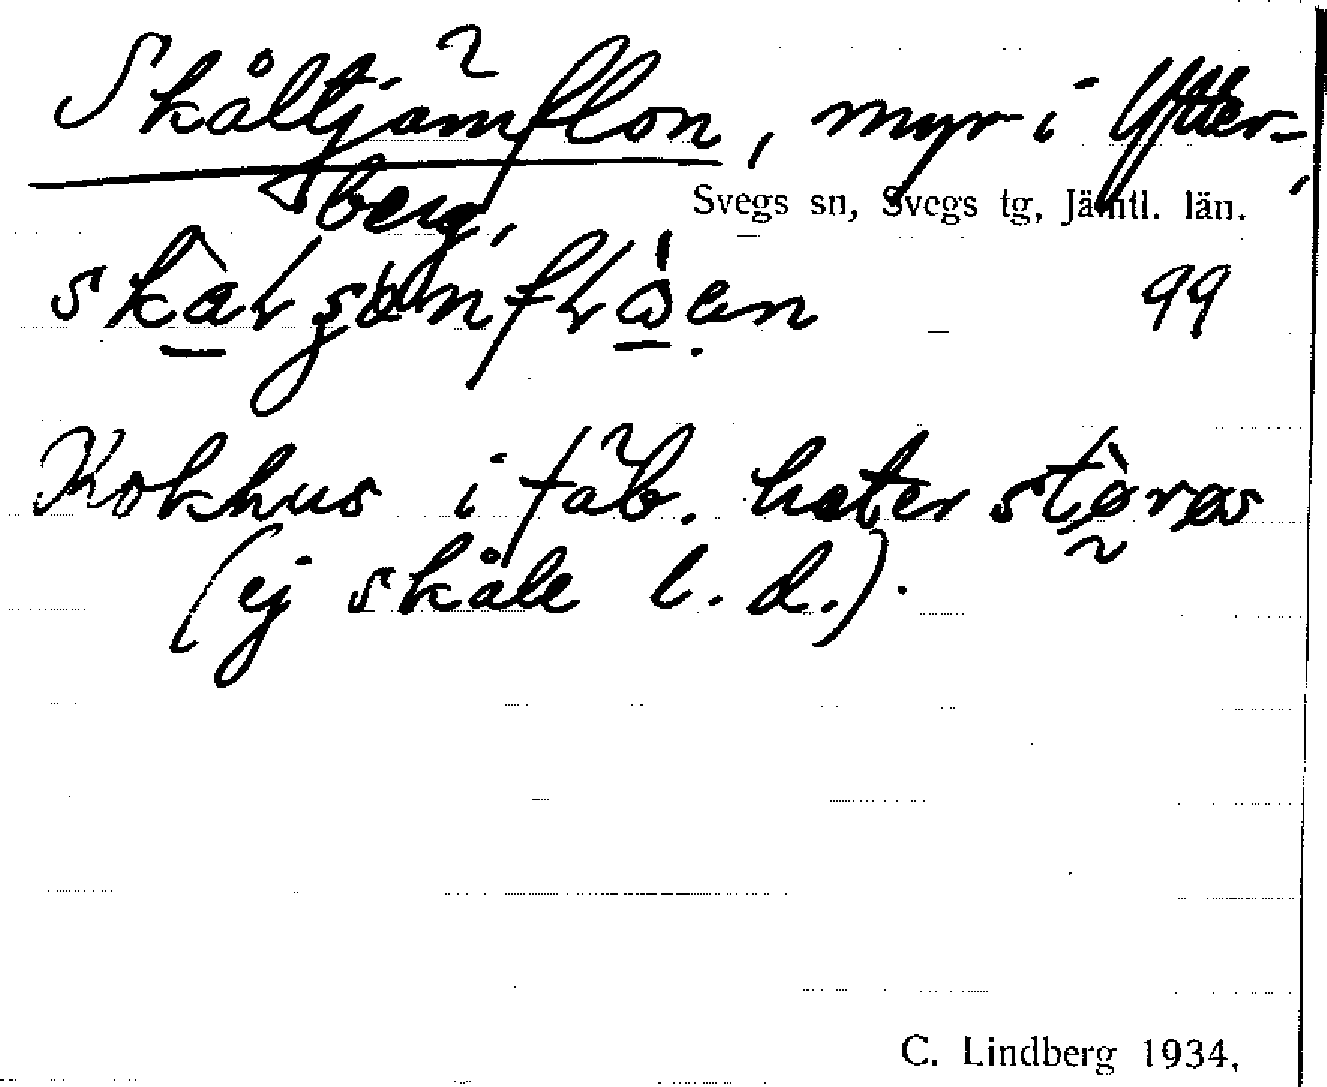 Skåltjärnflon, myr i Ytter-
berg,
Svegs sn, Svegs tg, Jämtl. län.
99
Kokhus i fäb. heter
(ej skåle l. d.).
C. Lindberg 1934,